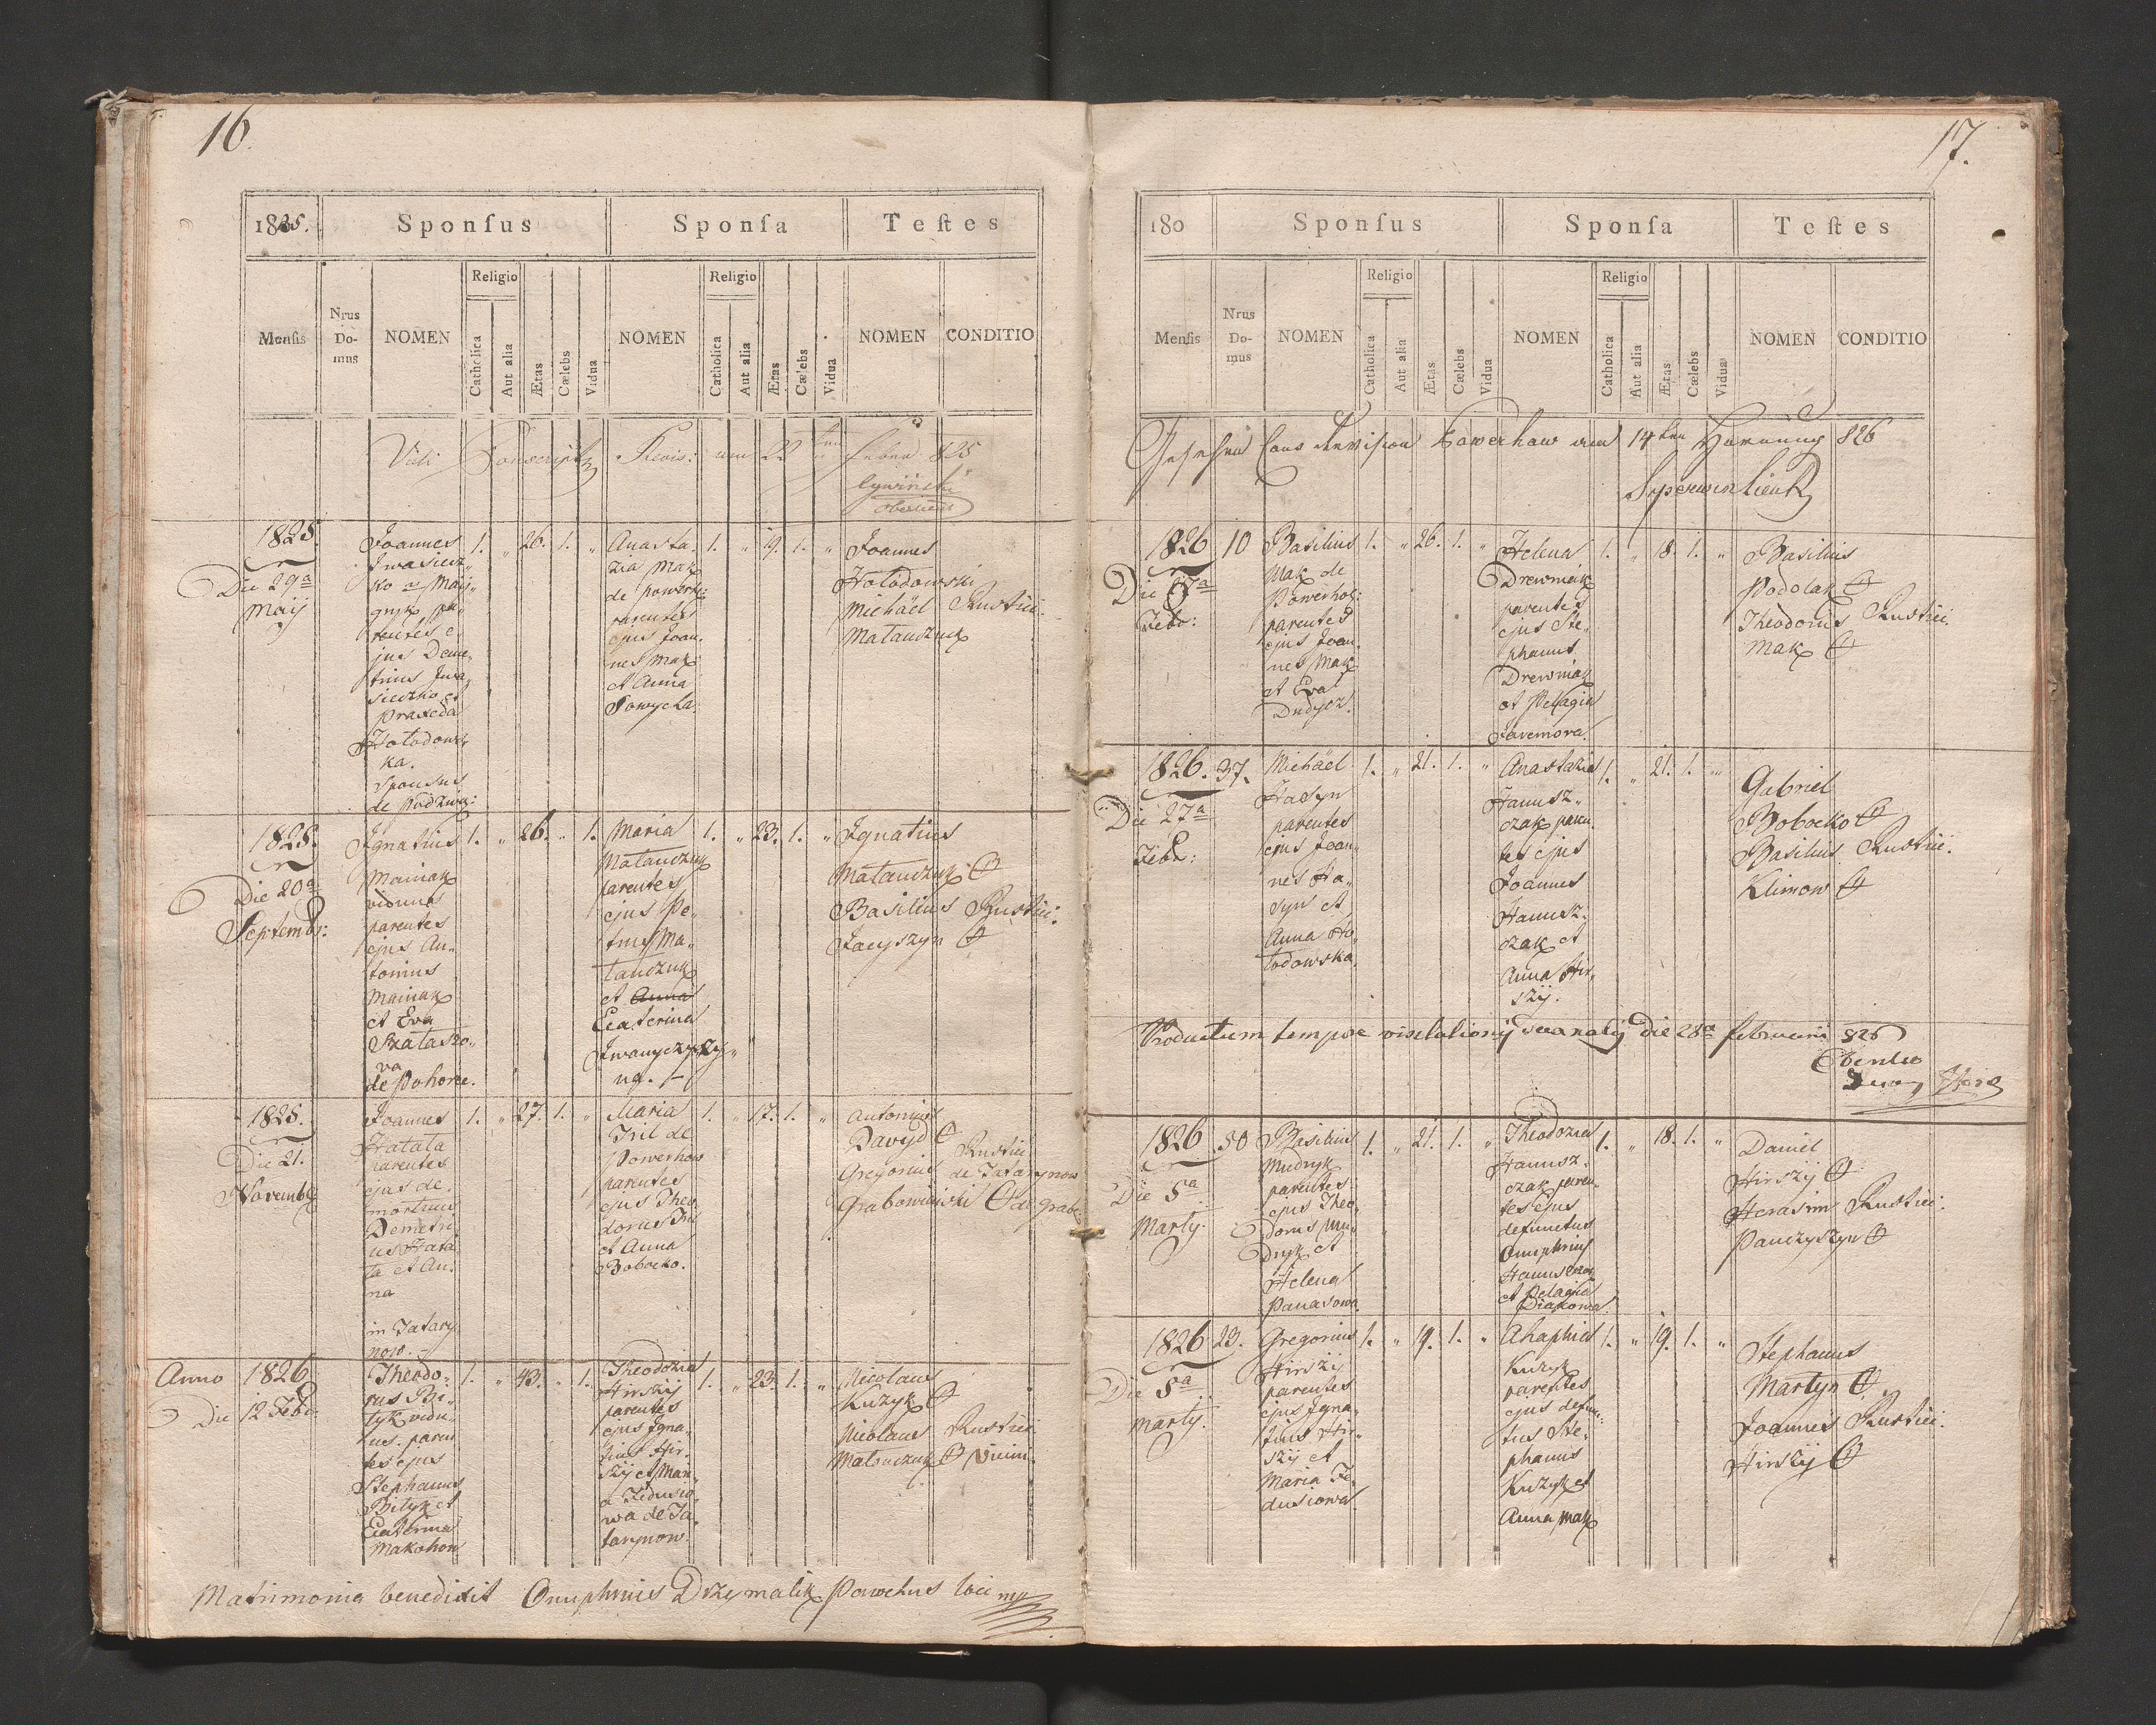 16.
1825.
Sponſus
Sponſa
Teſtes
Menſis
Nrus Do-mus
NOMEN
Religio
Catholica
Aut alia
Ætas
Cælebs
Vidua
NOMEN
Religio
Catholica
Aut alia
Ætas
Cælebs
Vidua
NOMEN
CONDITIO
Vidi Conscripts Revis: am 22ten 825
1825.
Die 29a
Maij
Joannes
Iwasiecz„
ko
parentes e„
jus Deme„
trius Iwa„
sieczko et
Praxeda
Hołodows„
ka.
Sponsus
1. „ 26. 1. „
Anasta„
zia Mak
de Powerh:
parentes
ejus Joan„
nes Mak
et Anna
1. „ 19. 1. „
Joannes
Hołodowski
Michäel Rustici.
Matauczuk
1825.
Die 20a
Septembr:
Ignatius
Mainak
viduus
parentes
ejus An„
tonius
Mainak
et Eva
de Pohorce.
1. „ 26. „ 1.
Maria
Matauczuk
parentes
ejus Pe„
trus Ma„
tauczuk
et Anna
Ecaterina
1. „ 23. 1. „
Ignatius
Matauczuk
Basilius Rustici.
Jacyszyn
1825.
Die 21.
Novemb
Joannes
Hatala
parentes
ejus de„
mortuus
Demetri„
us Hata„
la et An„
na
in Tatary„
now.
1. „ 27. 1. „
Maria
Iril de
Powerhow
parentes
ejus Theo„
dorus Iril
et Anna
Bobocko.
1. „ 17. 1. „
Antonius
Davyd Rustici
Gregorius de Tatarynow
Grabowienski de Grab:
Anno 1826
Die 12 Febr:
Theodo„
rus Bi„
łyk vidu„
us. paren„
tes ejus
Stephanus
Biłyk et
Ecaterina
Makohon
1. „ 43. „ 1.
Theodozia
Hirszij
parentes
ejus Igna„
tius Hir„
szij et Mari„
a Fedusio„
wa de Ta„
tarynow.
1. „ 23. 1. „
Nicolaus
Kuzyk
Nicolaus Rustici
Matauczuk
Matrimonia benedixit Onuphrius Drzymalik Parochus loci mp
17.
180
Sponſus
Sponſa
Teſtes
Menſis
Nrus Do-mus
NOMEN
Religio
Catholica
Aut alia
Ætas
Cælebs
Vidua
NOMEN
Religio
Catholica
Aut alia
Ætas
Cælebs
Vidua
NOMEN
CONDITIO
Gesehen Cons Revision Powerhow am 14ten Hornung 826
1826 10
Die 7a
Febr:
Basilius
Mak de
Powerhow:
parentes
ejus Joan„
nes Mak
et Eva
Dudycz.
1. „ 26. 1. „
Helena
Drewniak
parentes
ejus Ste„
phanus
Drewniak
et Pelagia
Javemora.
1. „ 18. 1. „
Basilius
Podolak
Theodorus Rustici.
Mak
1826. 37.
Die 27a
Febr:
Michäel
Hasyn
parentes
ejus Joan„
nes Ha„
syn et
Anna Ho„
łodowska.
1. „ 21. 1. „
Anastazia
Hanusz„
czak paren„
tes ejus
Joannes
Hanusz„
czak et
Anna Hir„
szij.
1. „ 21. 1. „
Gabriel
Bobocko
Basilius Rustici.
Klimow
Productum tempore visitationis decanalis die 28a februarii 826
1826. 50
Die 5a
Martij.
Basilius
Mudryk
parentes
ejus Theo„
dorus Mu„
dryk et
Helena
Panasowa.
1. „ 21. 1. „
Theodozia
Hanusz„
czak paren„
tes ejus
defunctus
Onuphrius
Hanuszczak
et Pelagia
Diakowa.
1. „ 18. 1. „
Daniel
Hirszij
Herasim Rustici.
Panczyszyn
1826 23.
Die 5a
Martij.
Gregorius
Hirszij
parentes
ejus Igna„
tius Hir„
szij et
Maria Fe„
dusiowa.
1. „ 19. 1. „
Ahaphia
Kuzyk
parentes
ejus defunc„
tus Ste„
phanus
Kuzyk et
Anna Mak
1. „ 19. 1. „
Stephanus
Martyn
Joannes Rustici.
Hirszij